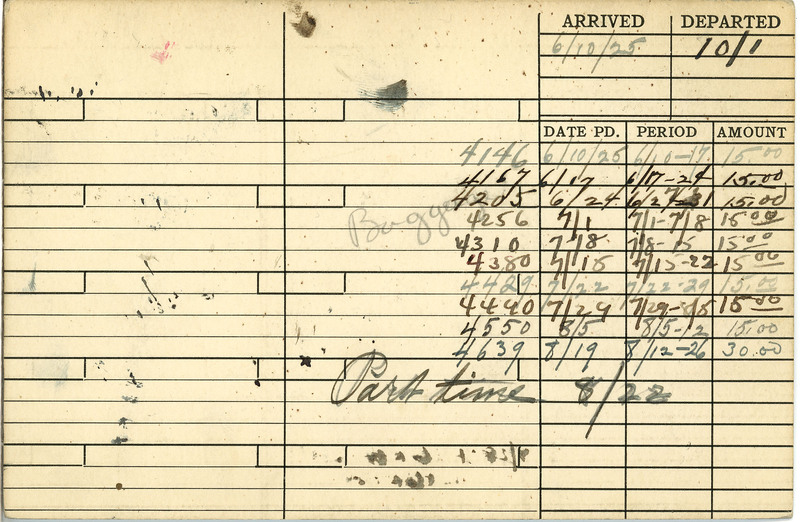 ARRIVED DEPARTED
6/10/25 10/1
DATE PD. PERIOD AMOUNT
4146 6/10/25 6/10-17 15.00
4167 6/17 6/17-24 15.00
4205 6/24 6/24-31 15.00
4256 7/1 7/1-7/8 15.00
4310 7/8 7/8-15 15.00
4380 7/15 7/15-22 15.00
4429 7/22 7/22-29 15.00
4440 7/29 7/29-8/5 15.00
4550 8/5 8/5-12 15.00
4639 8/19 8/12-26 30.00
Part time 8/22